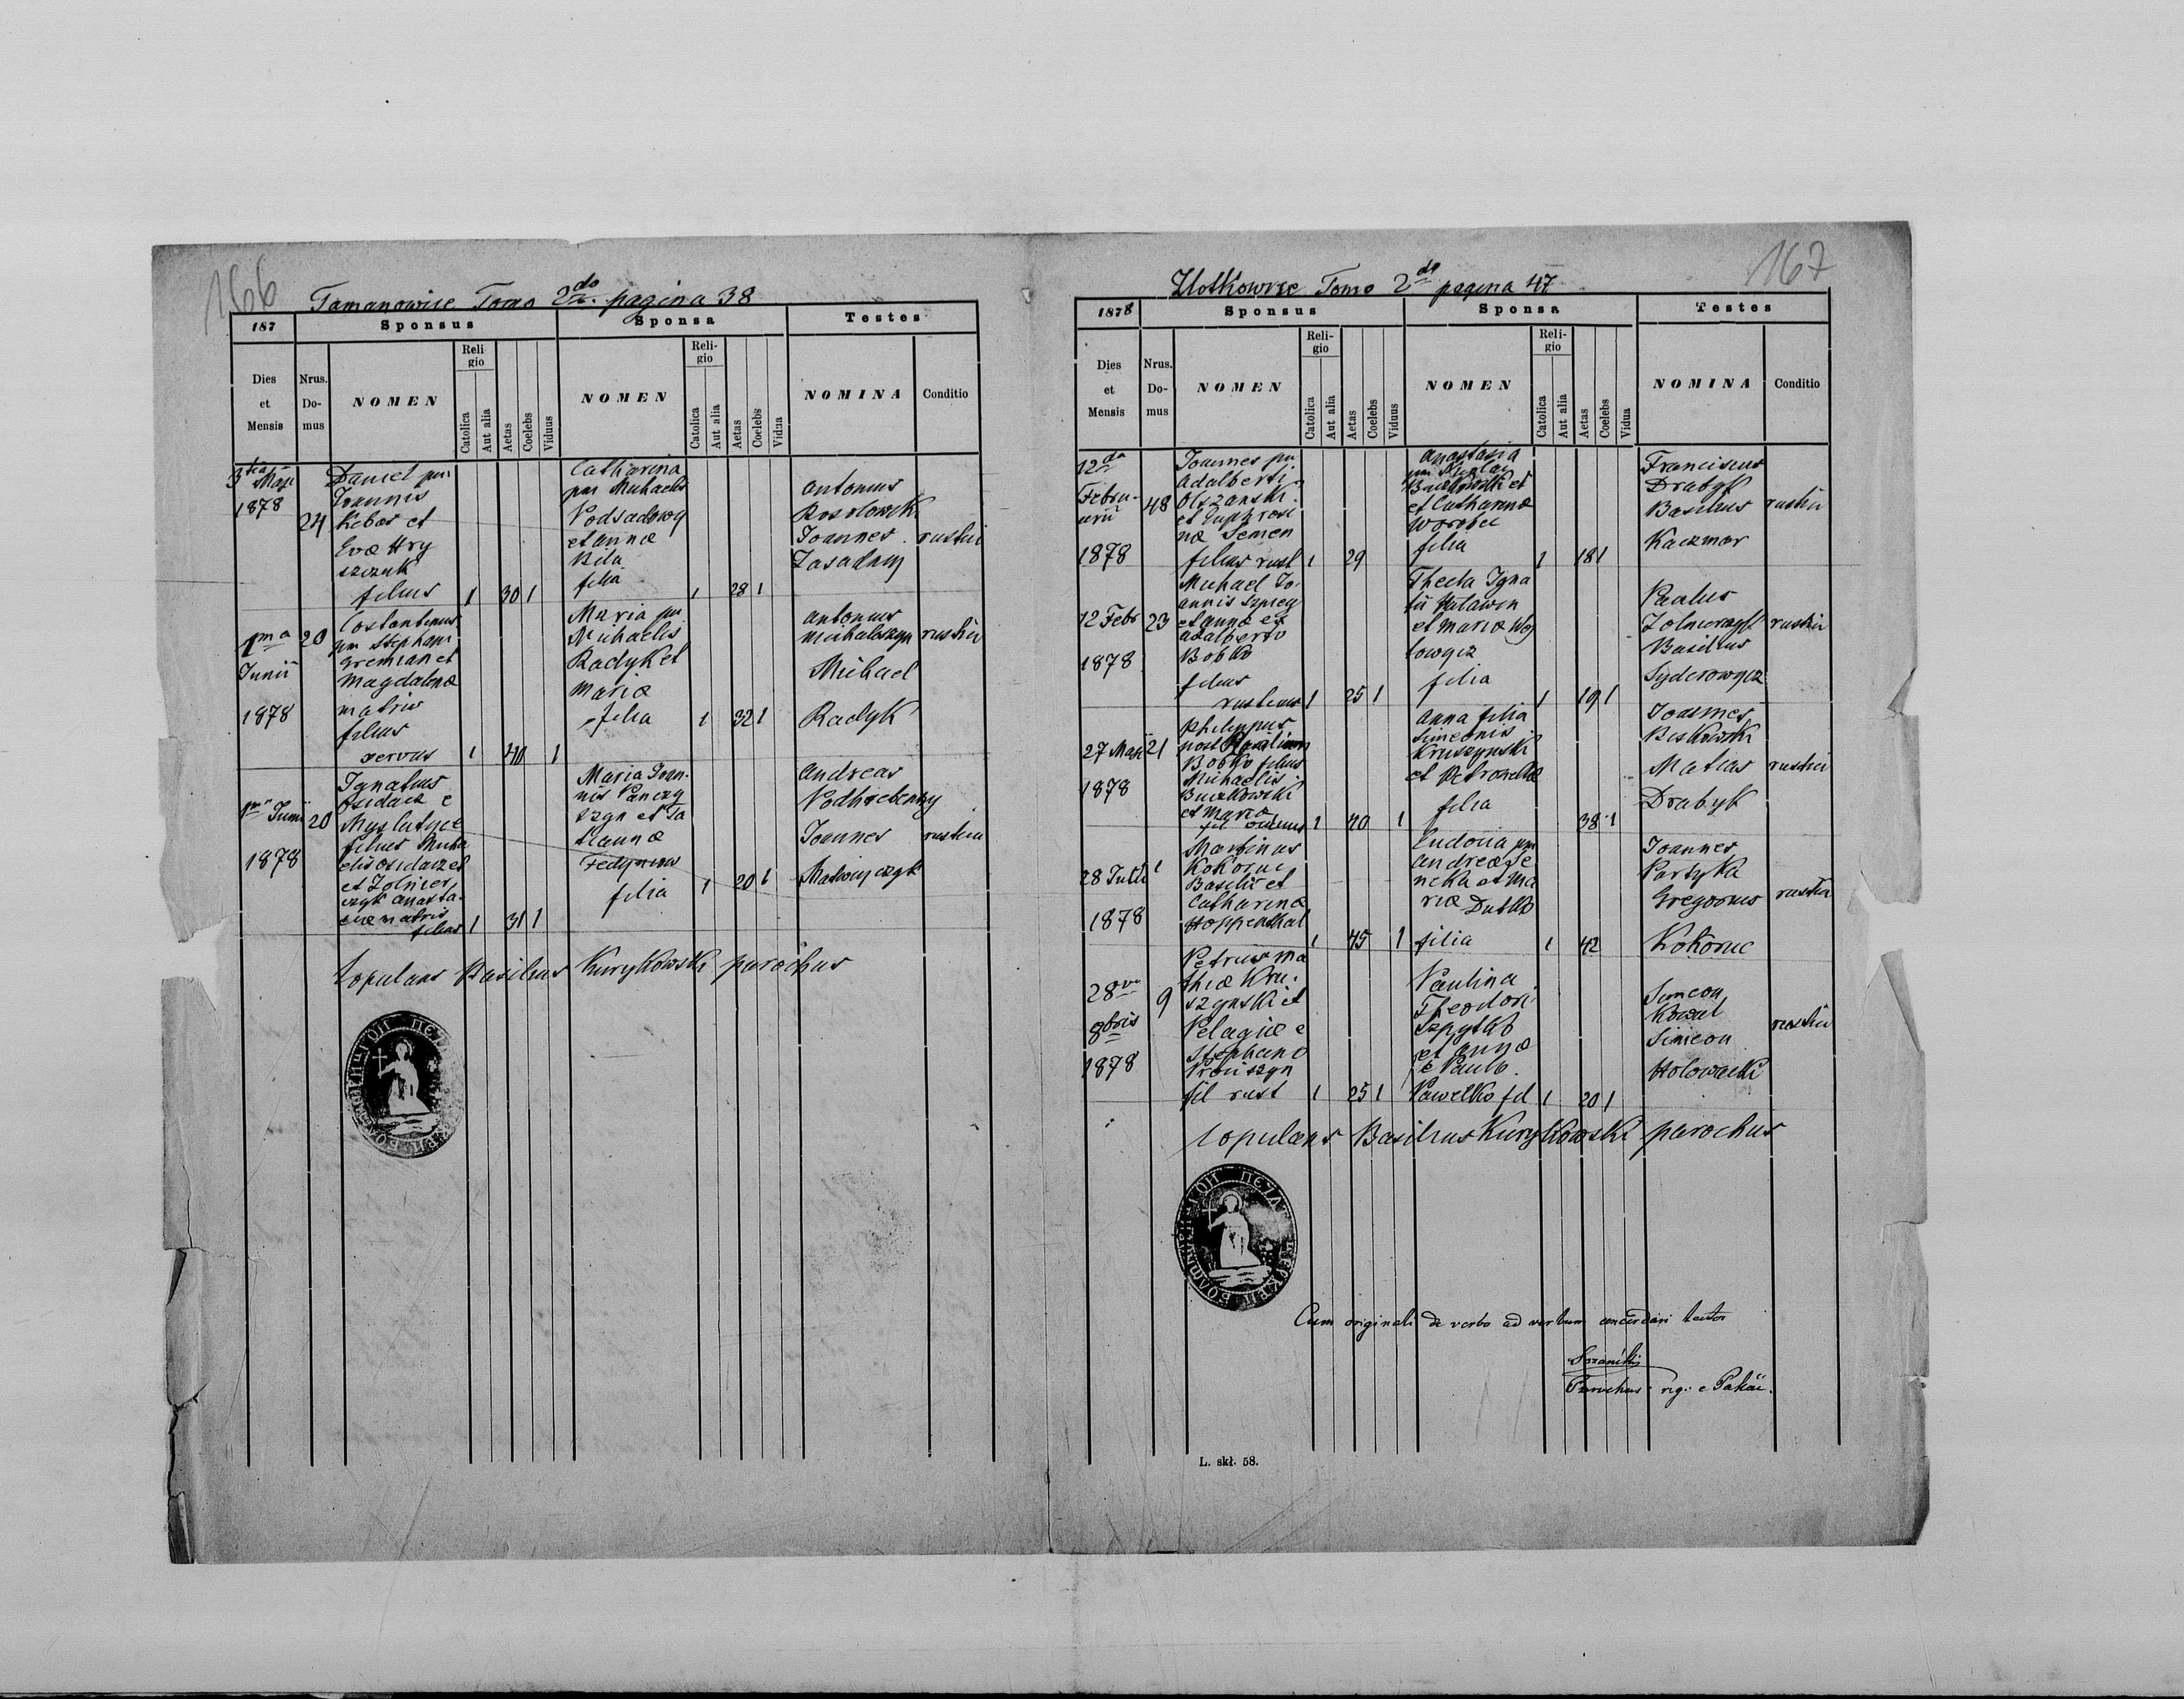 166
Tamanowise Tomo 2do pagina 38
187
Sponsus
Sponsa
Testes
Dies et Mensis
Nrus. Domus
NOMEN
Religio
Catolica
Aut alia
Aetas
Coelebs
Viduus
NOMEN
Religio
Catolica
Aut alia
Aetas
Coelebs
Vidua
NOMINA
Conditio
3tia Maji
1878
24
Daniel pm
Joannis
Kebas et
Eva Hry
szczuk
filius
1 30 1
Catharina
pm Michaelis
Podsadowy
et Anna
Bila
filia
1 28 1
Antonius
Rosolowski
Joannes
Zasadny
rustici
1ma
Junii
1878
20
Costantinus
pm Stephani
Gremian et
Magdalena
matris
filius
servus
1 40 1
Maria pm
Michaelis
Radyk et
Maria
filia
1 32 1
Antonius
Michalszyn
Michael
Radyk
rustici
1ma Junii
1878
20
Ignatius
Osidacz e
Myslatyce
filius Micha
elis Osidacz et
et Zolnier
czyk Anasta
siae matris
filius
1 31 1
Maria Joan
nis Panczy
szyn et Ta
tianna
Fedyniow
filia
1 20 1
Andreas
Podhrebenny
Joannes
Matwijczyk
rustici
Copulans Basilius Kurykowski parochus
167
Zlotkowice Tomo 2do pagina 47
1878
Sponsus
Sponsa
Testes
Dies et Mensis
Nrus. Domus
NOMEN
Religio
Catolica
Aut alia
Aetas
Coelebs
Viduus
NOMEN
Religio
Catolica
Aut alia
Aetas
Coelebs
Vidua
NOMINA
Conditio
12da
Febru-
arii
1878
48
Joannes pm
Adalberti
Olszanski
et Euphrosi
na Semen
filius rust
1 29
Anastasia
pm Nicolai
Buczkowski et
et Catharina
Worobec
filia
1 18 1
Franciscus
Drabyk
Basilius
Kaczmar
rustici
12 Febr
1878
23
Michael Jo-
annis Szpieg
et Anna ex
Adalberto
Bobko
filius
rusticus
1 25 1
Thecla Igna
tii
et Maria Wo
towicz
filia
1 19 1
Paulus
Zolnierczyk
Basilius
Syderowycz
rustici
27 Maji
1878
21
Philippus
post
Bobko filius
Michaelis
Buczkowski
et Maria
fil
1 40 1
Anna filia
Simeonis
Kruszynski
et Petronella
filia
38 1
Joannes
Biskowski
Matias
Drabyk
rustici
28 Julii
1878
1
Martinus
Kokoruc
Basilii et
Catharina
Hoppenthal
1 45 1
Eudocia pm
Andrea Se
neka et Ma
ria Dutko
filia
1 42
Joannes
Partyka
Gregorius
Kokoruc
rustici
28va
8bris
1878
9
Petrus Ma
thia Kru
szynski et
Pelagia e
Stephano
Prouszyn
fil rust
1 25 1
Paulina
Theodori
Szpytko
et Anna
e Paulo
Pawelko fil
1 20 1
Simeon
Kowal
Simeon
Holowacki
rustici
Copulans Basilius Kurykowski parochus
Cum originali de verbo ad verbum concordari testor
Parochus
L. skł. 58.